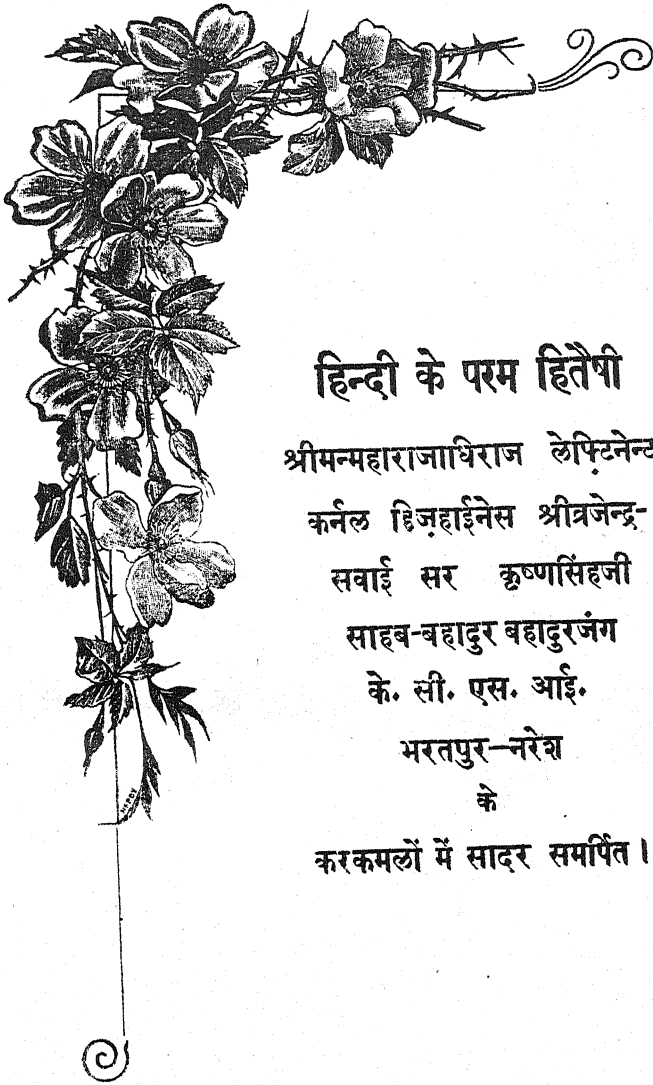 हिन्दी के परम हितैषी
श्रीमन्महाराजाधिराज लेफ़्टिनेन्ट
कर्नल हिज़हाईनेस श्रीव्रजेन्द्र-
सवाई सर कृष्णसिंहजी
साहब-बहादुर बहादुरजंग
के. सी. एस. आई.
भरतपुर—नरेश
के
करकमलों में सादर समर्पित।